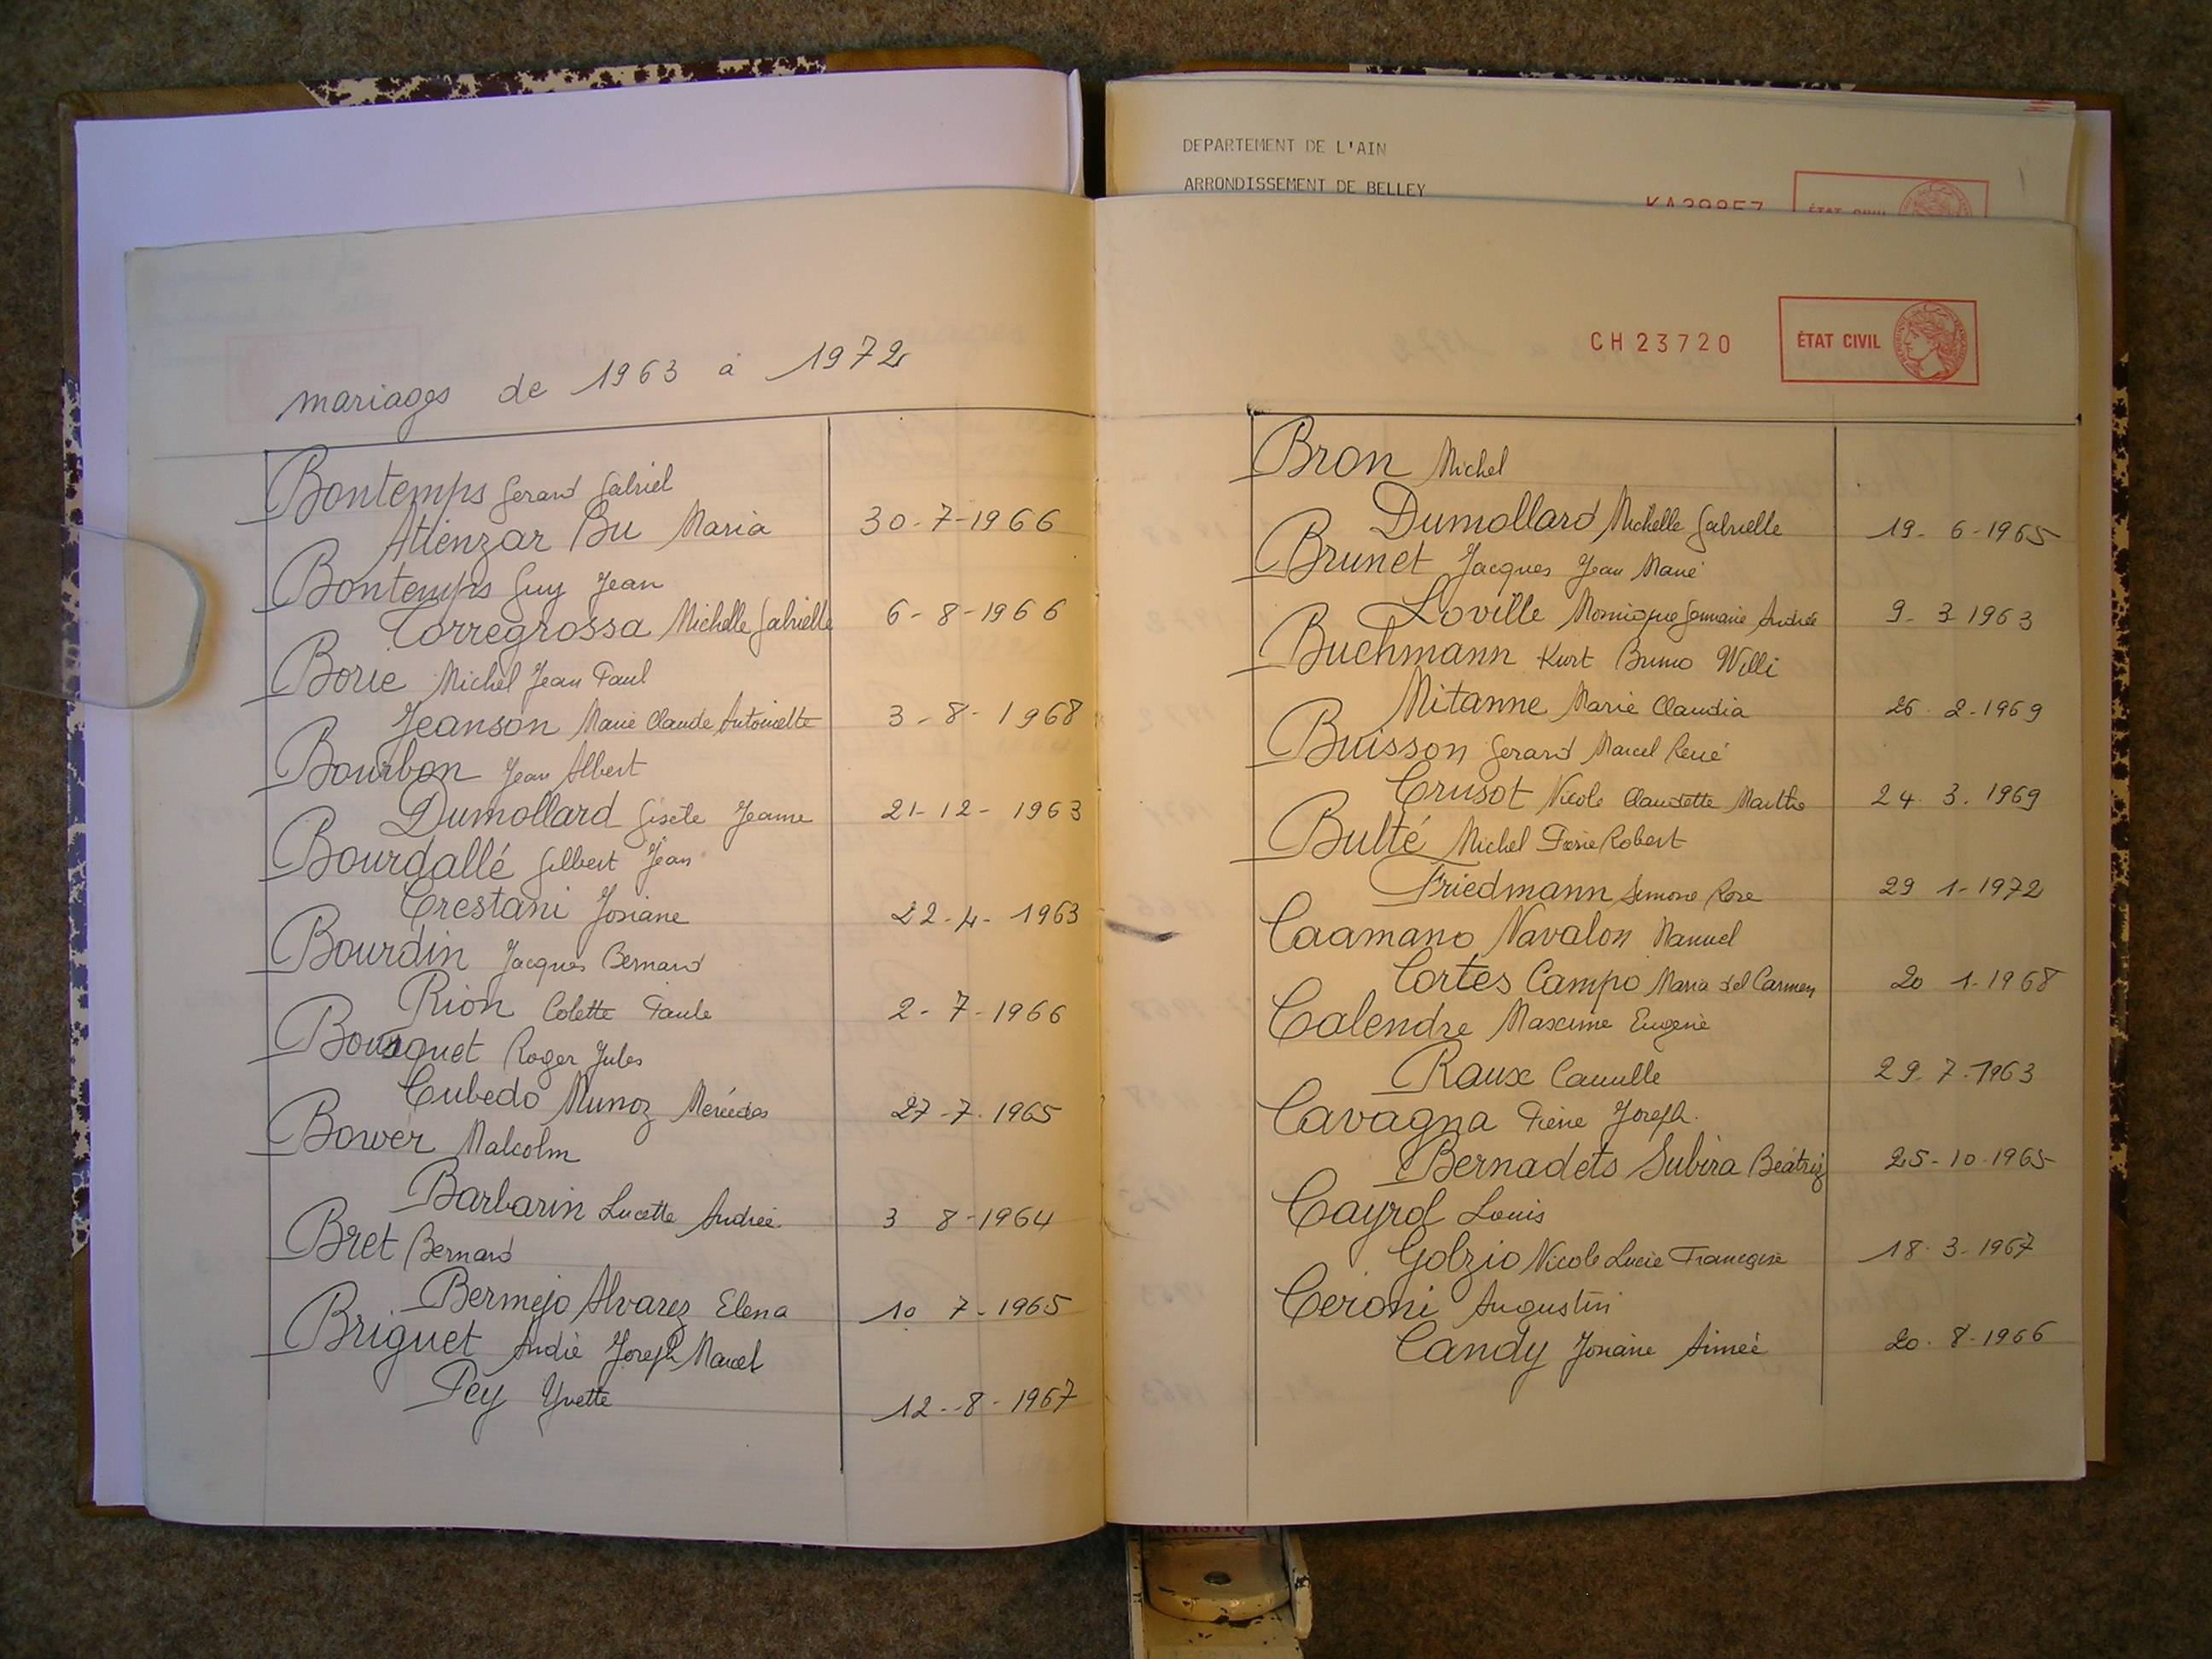 mariages de 1963 à 1972
Bontemps Gerard Gabriel
Atienzar Bu Maria 30-7-1966
Bontemps Guy Jean
Torregrossa Michelle Gabrielle 6-8-1966
Borie Michel Jean Paul
Jeanson Marie Claude Antoinette 3-8-1968
Bourbon Jean Albert
Dumollard Gisèle Jeanne 21-12-1963
Bourdallé Gilbert Jean
Crestani Josiane 22-4-1963
Bourdin Jacques Bernard
Rion Colette Paule 2-7-1966
Bousquet Roger Jules
Cubedo Munoz Mercédes 27-7-1965
Bower Malcolm
Barbarin Lucette Andrée 3 8-1964
Bret Bernard
Bermejo Alvarez Elena 10 7-1965
Briguet André Joseph Marcel
Pey Yvette 12-8-1967
DEPARTEMENT DE L'AIN
ARRONDISSEMENT DE BELLEY
ÉTAT CIVIL
CH 23720 ÉTAT CIVIL
Bron Michel
Dumollard Michelle Gabrielle 19-6-1965
Brunet Jacques Jean Marie
Loville Monique Germaine Andrée 9-3 1963
Buchmann Kurt Bruno Willi
Mitanne Marie Claudia 26 2-1969
Buisson Gerard Marcel René
Crusot Nicole Claudette Marthe 24 3. 1969
Bulté Michel Pierre Robert
Friedmann Simone Rose 29 1-1972
Caamano Navalon Manuel
Cortes Campo Maria del Carmen 20 1-1968
Calendre Maxime Eugène
Raux Camille 29.7.1963
Cavagna Pierre Joseph.
Bernadets Subira Béatriz 25-10-1965
Cayrol Louis
Golzio Nicole Lucie Françoise 18.3-1967
Ceroni Augustin
Candy Josiane Aimée 20.8-1966